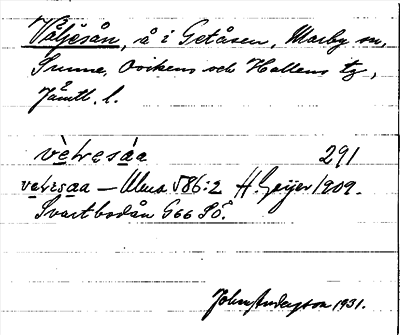 Väljesån, å i Getåsen, Marby sn,
Sunne, Ovikens och Hallens tg,
Jämtl. l.
vèlresáa 291
velresaa — Ulma 586:2 H. Geijer 1909.
Svartbodån G66 SÖ.
John Anderzon 1931.